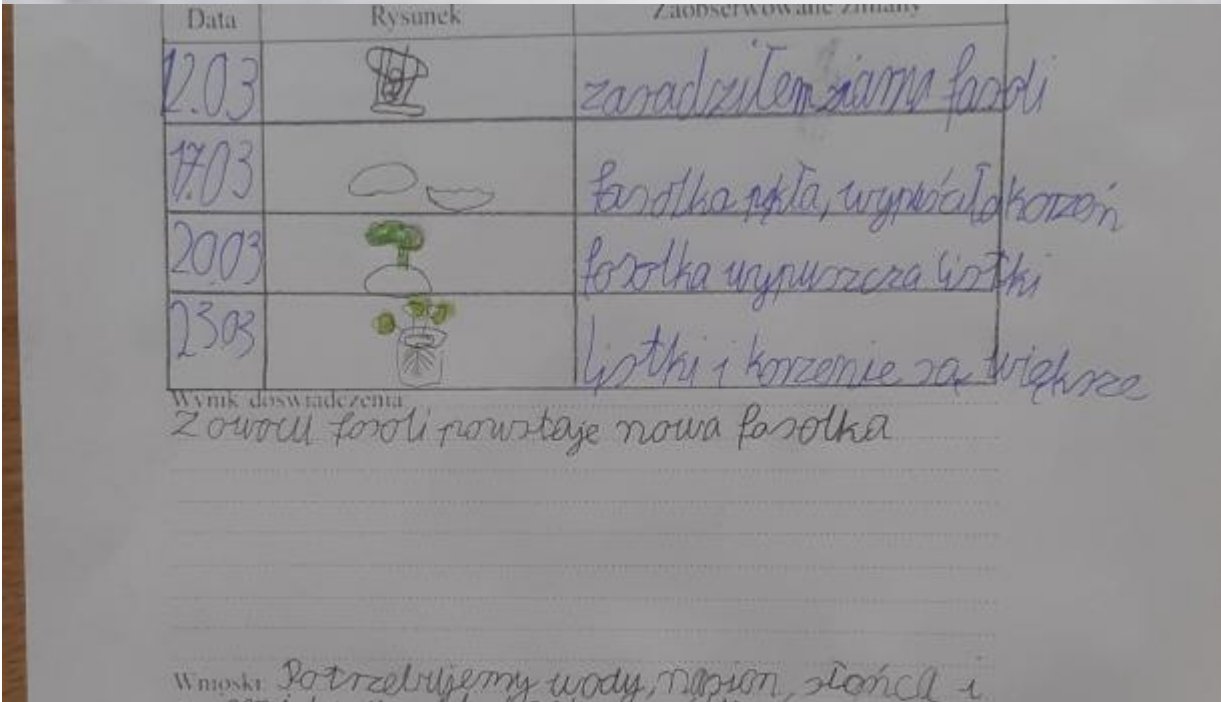 Data Rysunek Zaobserwowane zmiany
12.03 zasadziłem ziarna fasoli
17.03 fasolka pękła, wypuściała korzeń
20.03 fasolka wypuszcza listki
23.03 listki i korzenie są większe
Wynik doświadczenia
Z owocu fasoli powstaje nowa fasolka
Wnioski: Potrzebujemy wody, nasion, słońca i